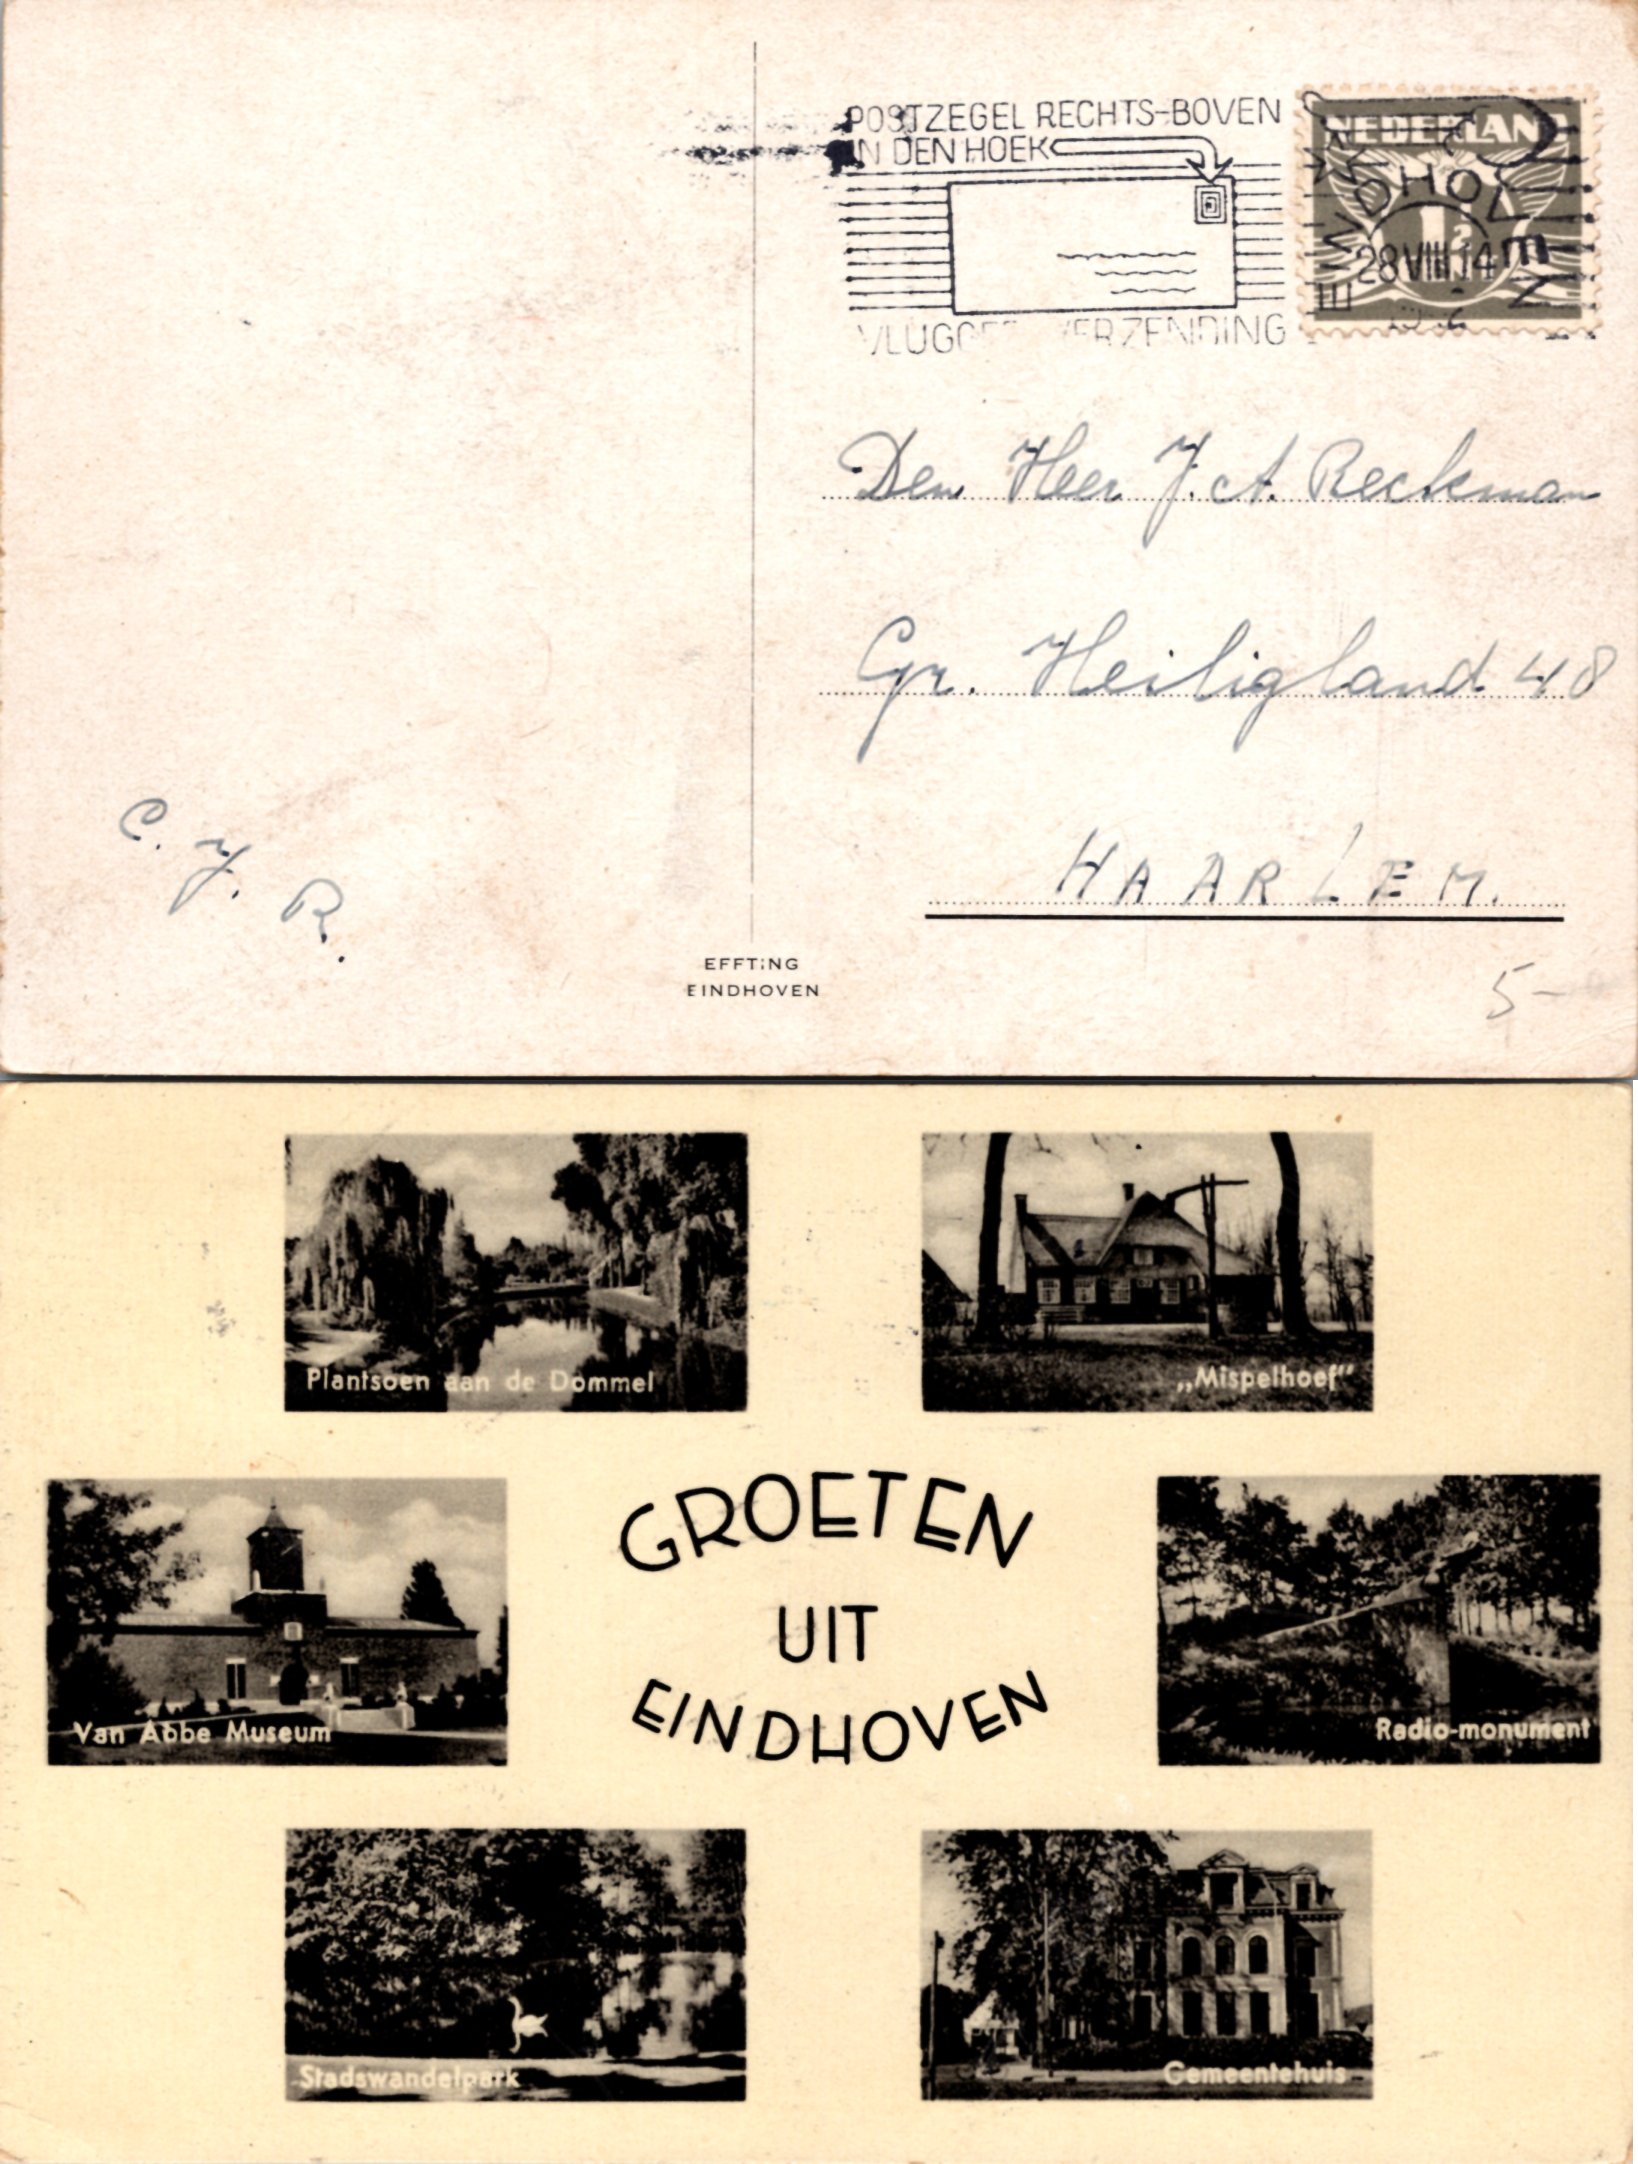 POSTZEGEL RECHTS-BOVEN
IN DEN HOEK
VERZENDING
NEDERLAND
1½
EINDHOVEN
28 VIII 14
Den Heer J. A. Reckman
Gr. Heiligland 48
HAARLEM.
C. J. R.
EFFTING
EINDHOVEN
5-
Plantsoen aan de Dommel
„Mispelhoef"
GROETEN
UIT
EINDHOVEN
Van Abbe Museum
Radio-monument
Stadswandelpark
Gemeentehuis